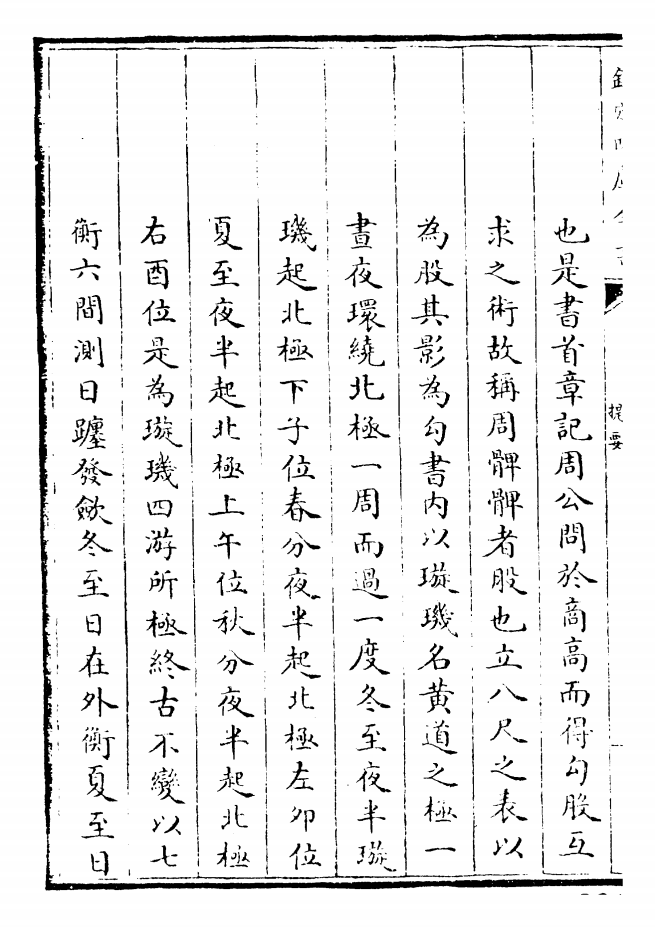 欽定四庫全書
提要
也是書首章記周公問於商高而得勾股互
求之術故稱周髀髀者股也立八尺之表以
為股其影為勾書内以璇璣名黃道之極一
晝夜環繞北極一周而過一度冬至夜半璇
璣起北極下子位春分夜半起北極左卯位
夏至夜半起北極上午位秋分夜半起北極
右酉位是為璇璣四游所極終古不變以七
衡六間測日躔發斂冬至日在外衡夏至日